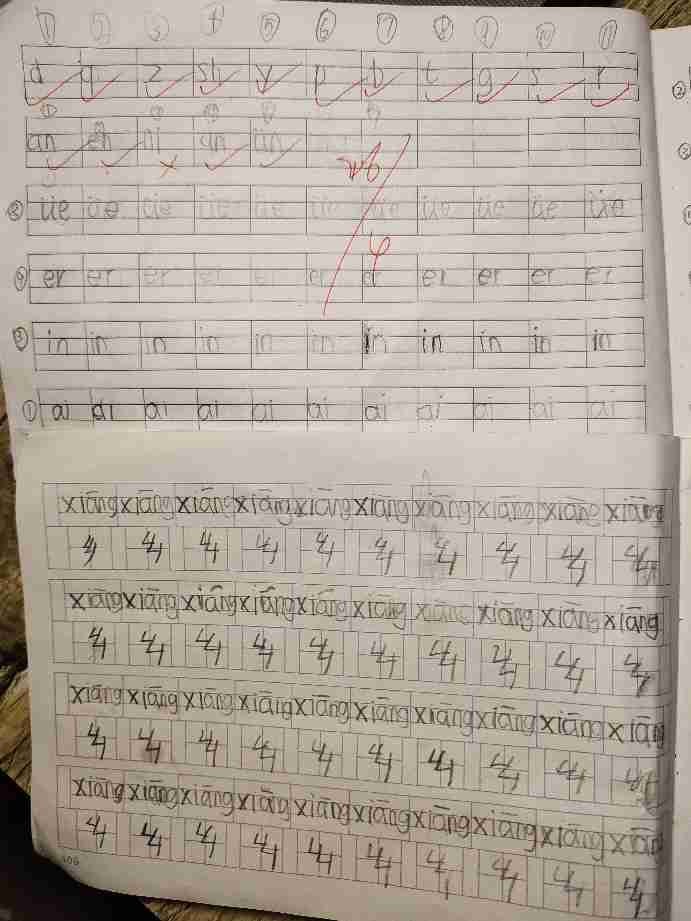 ① ② ③ ④ ⑤ ⑥ ⑦ ⑧ ⑨ ⑩ ⑪
d q z sh y p b t g s r
an en ni un ün
② üe üe üe üe üe üe üe üe üe üe üe
er er er er er er er er er er er
③ in in in in in in in in in in in
① ai ai ai ai ai ai ai ai ai ai ai
xiāng xiāng xiāng xiāng xiāng xiāng xiāng xiāng xiāng xiāng
乡 乡 乡 乡 乡 乡 乡 乡 乡 乡
xiāng xiāng xiāng xiāng xiāng xiāng xiāng xiāng xiāng xiāng
乡 乡 乡 乡 乡 乡 乡 乡 乡 乡
xiāng xiāng xiāng xiāng xiāng xiāng xiāng xiāng xiāng xiāng
乡 乡 乡 乡 乡 乡 乡 乡 乡 乡
xiāng xiāng xiāng xiāng xiāng xiāng xiāng xiāng xiāng xiāng
乡 乡 乡 乡 乡 乡 乡 乡 乡 乡